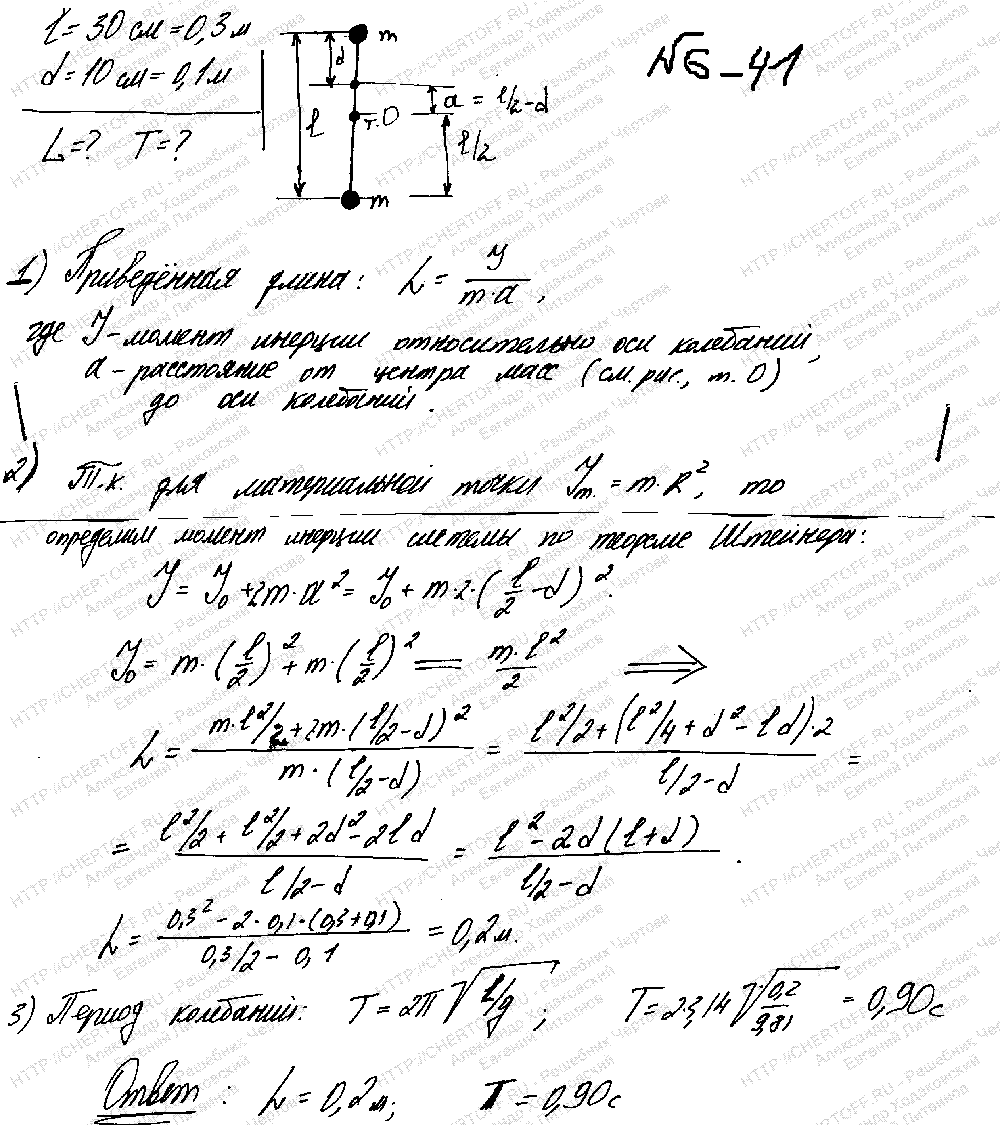 l = 30 см = 0,3 м
d = 10 см = 0,1 м
L = ? T = ?
m
d
a = l/2 - d
т.О
l
l/2
m
№6-41
1) Приведённая длина: L = J / (m·a),
где J - момент инерции относительно оси колебаний,
a - расстояние от центра масс (см. рис., т. О)
до оси колебаний.
2) Т.к. для материальной точки Jт. = m·R², то
определим момент инерции системы по теореме Штейнера:
J = J₀ + 2m·a² = J₀ + m·2·(l/2 - d)².
J₀ = m·(l/2)² + m·(l/2)² = m·l²/2 ⟹
L = (m·l²/2 + 2m·(l/2 - d)²) / (m·(l/2 - d)) = (l²/2 + (l²/4 + d² - ld)·2) / (l/2 - d) =
= (l²/2 + l²/2 + 2d² - 2ld) / (l/2 - d) = (l² - 2d(l + d)) / (l/2 - d).
L = (0,3² - 2·0,1·(0,3+0,1)) / (0,3/2 - 0,1) = 0,2 м.
3) Период колебаний: T = 2π√(l/g); T = 2·3,14√(0,2/9,81) = 0,90 с
Ответ: L = 0,2 м; T = 0,90 с
HTTP://CHERTOFF.RU - Решебник Чертова
Александр Ходаковский
Евгений Литвинов